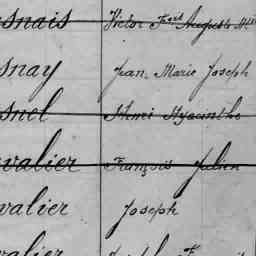 snais Victor Fçois Auguste M
snay Jean Marie Joseph
snel Henri Hyacinthe
valier François Julien
valier Joseph
valier Joseph F